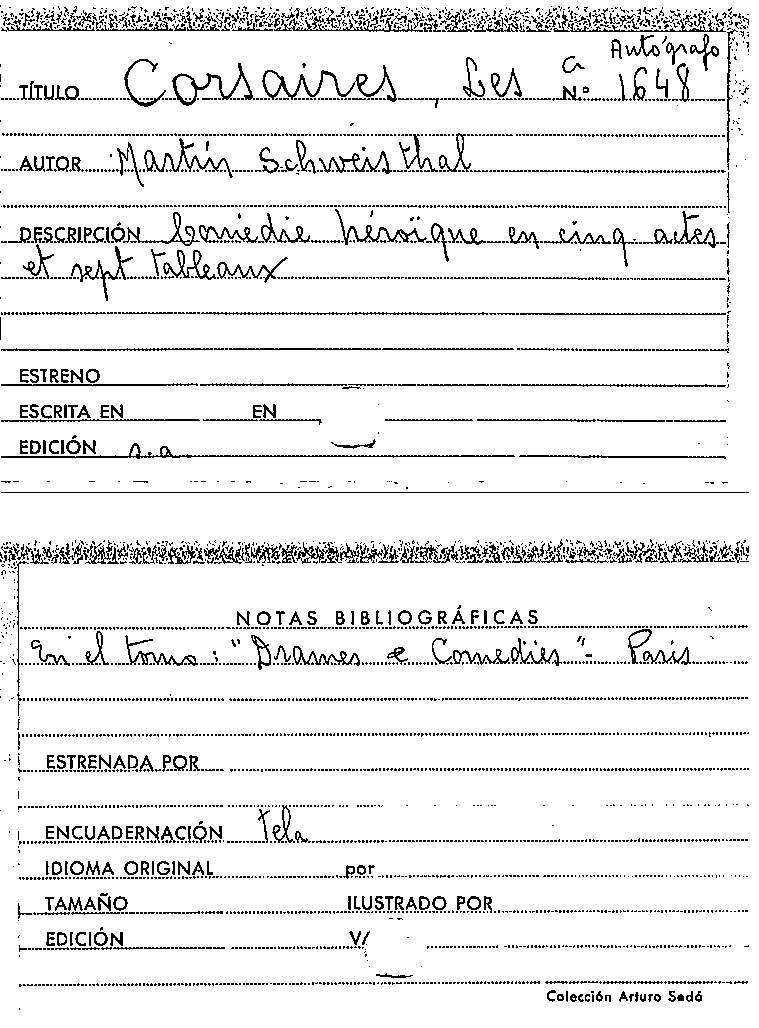 Autógrafo
TÍTULO Corsaires, Les a N.º 1648
AUTOR Martín Schweisthal
DESCRIPCIÓN Comédie héroïque en cinq actes
et sept tableaux
ESTRENO
ESCRITA EN EN
EDICIÓN s.a.
NOTAS BIBLIOGRÁFICAS
En el tomo: "Drames e Comedies" - Paris
ESTRENADA POR
ENCUADERNACIÓN Tela
IDIOMA ORIGINAL por
TAMAÑO ILUSTRADO POR
EDICIÓN V/
Colección Arturo Sedó